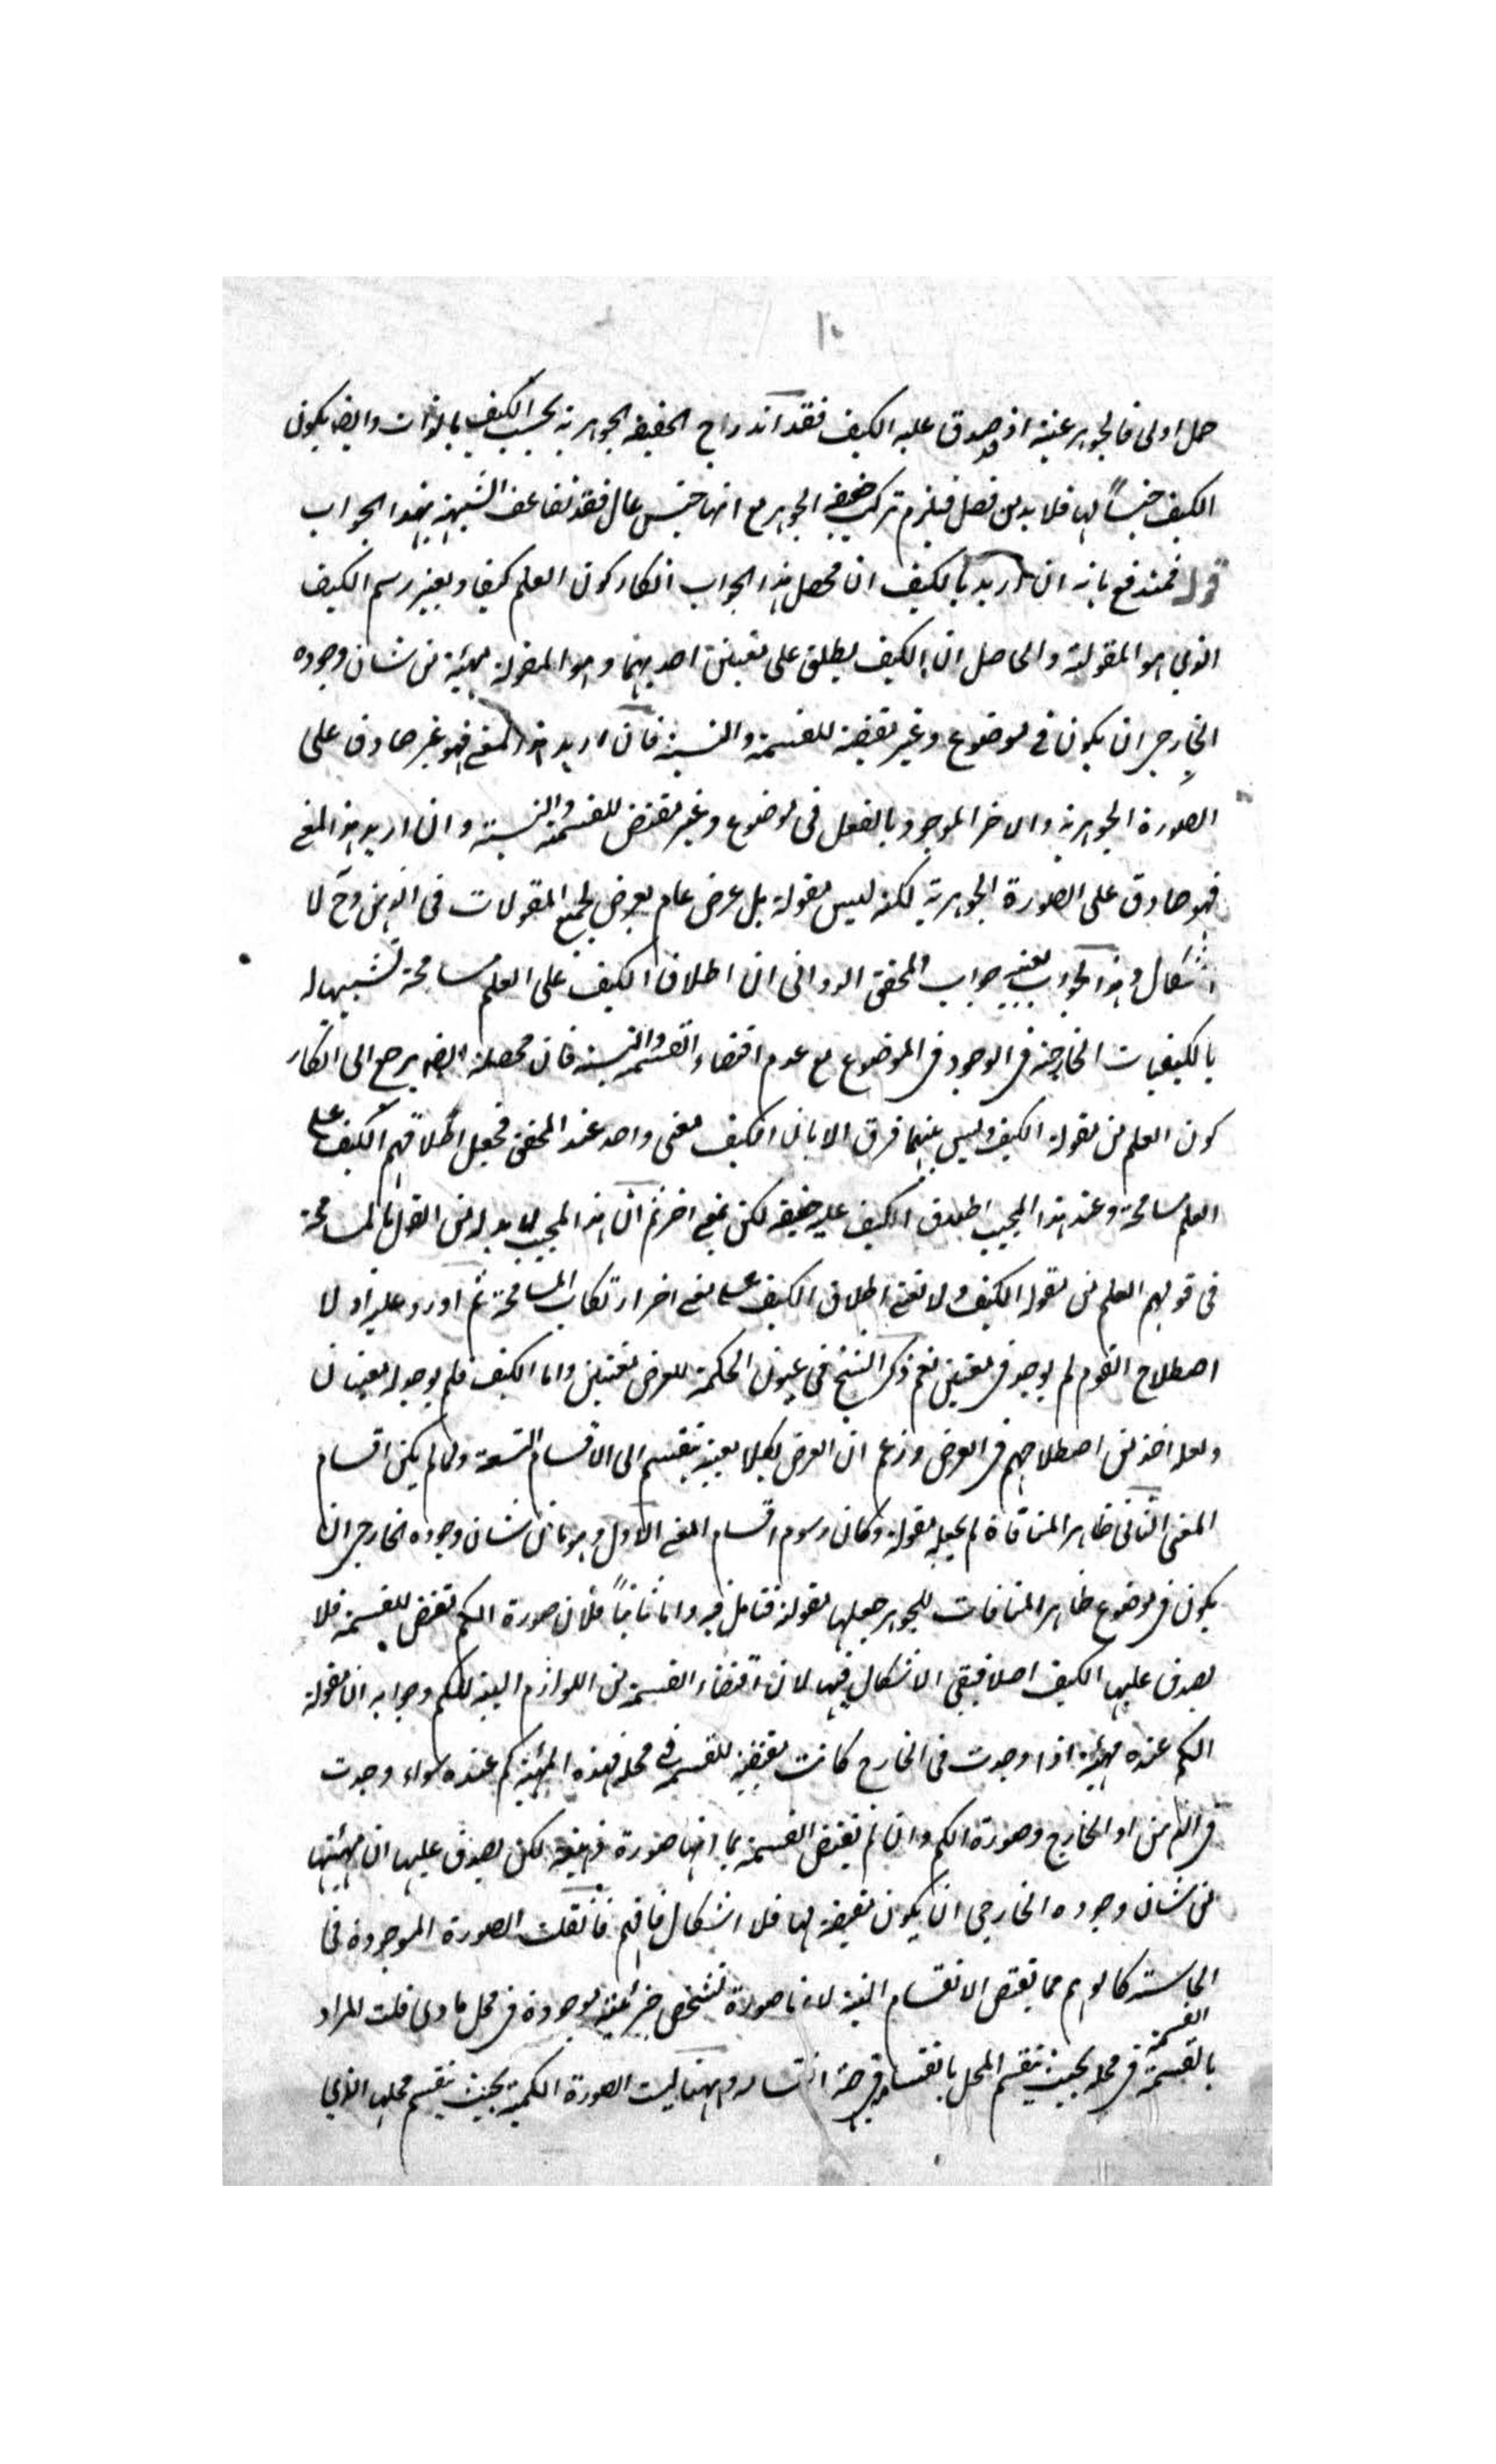 ١٠
حمل اولى فالجوهر عنية اذ قد صدق عليه الكيف فقد اندراج الحقيقة الجوهرية بحسب الكيف بالذات وايضا يكون
الكيف جنساً لها فلا بد من فصل فيلزم تركب حقيقة الجوهر مع انها جنس عال فقد تضاعف الشبهة بهذا الجواب
قوله فمندفع بانه ان اريد بالكيف ان محصل هذا الجواب انكار كون العلم كيفا وتغيير رسم الكيف
الذي هو المقولة والحاصل ان الكيف يطلق على معنيين احدهما وهو المقولة مهية من شان وجوده
الخارجي ان يكون في موضوع وغير مقتضية للقسمة والنسبة فان اريد هذا المعنى فهو غير صادق على
الصورة الجوهرية والاخر الموجود بالفعل في موضوع وغير مقتض للقسمة والنسبة وان اريد هذا المعنى
فهو صادق على الصورة الجوهرية لكنه ليس مقولة بل عرض عام يعرض لجميع المقولات في الذهن وح لا
اشكال وهذا الجواب بعينه جواب المحقق الدواني ان اطلاق الكيف على العلم مسامحة تشبيها له
بالكيفيات الخارجية في الوجود في الموضوع مع عدم اقتضاء القسمة والنسبة فان محصله ايضا يرجع الى انكار
كون العلم من مقولة الكيف وليس بينهما فرق الا بان الكيف معنى واحد عند المحقق فجعل اطلاقهم الكيف على
العلم مسامحة وعند هذا المجيب اطلاق الكيف عليه حقيقة لكن بمعنى اخر ثم ان هذا المجيب لا بد له من القول بالمسامحة
في قولهم العلم من مقولة الكيف ولا نعنى اطلاق الكيف على معنى اخر ارتكاب المسامحة ثم اورد عليه اولا
اصطلاح القوم لم يوجد في معنيين نعم ذكر الشيخ في عيون الحكمة للعرض معنيين واما الكيف فلم يوجد له معنيان
ولعله اخذ من اصطلاحهم في العرض وزعم ان العرض بكلا معنييه ينقسم الى الاقسام التسعة ولما لم يكن اقسام
المعنى الثاني ظاهر المنافاة لم يجعله مقولة وكان رسوم اقسام المعنى الاول وهو ما من شان وجوده الخارجي ان
يكون في موضوع ظاهر المنافات للجوهر جعلها مقولة فتامل فيه واما ثانياً فلان صورة الكم تقتضى للقسمة فلا
يصدق عليها الكيف اصلا فبقى الاشكال فيها لان اقتضاء القسمة من اللوازم البينة للكم وجوابه ان مقولة
الكم عنده مهية اذا وجدت في الخارج كانت مقتضية للقسمة في محله فهذه المهية كم عنده سواء وجدت
في الذهن او الخارج وصورة الكم وان لم تقتض القسمة بما انها صورة ذهنية لكن يصدق عليها ان مهيتها
من شان وجوده الخارجي ان يكون مقتضية لها فلا اشكال فافهم فان قلت الصورة الموجودة في
الحاسة كالوهم مما تقتض الانقسام البتة لانها صورة تشخص جزئية موجودة في محل مادى قلت المراد
القسمة
بالقسمة في محله بحيث ينقسم المحل بانقسام وههنا ليست الصورة الكمية بحيث ينقسم محلها الذي